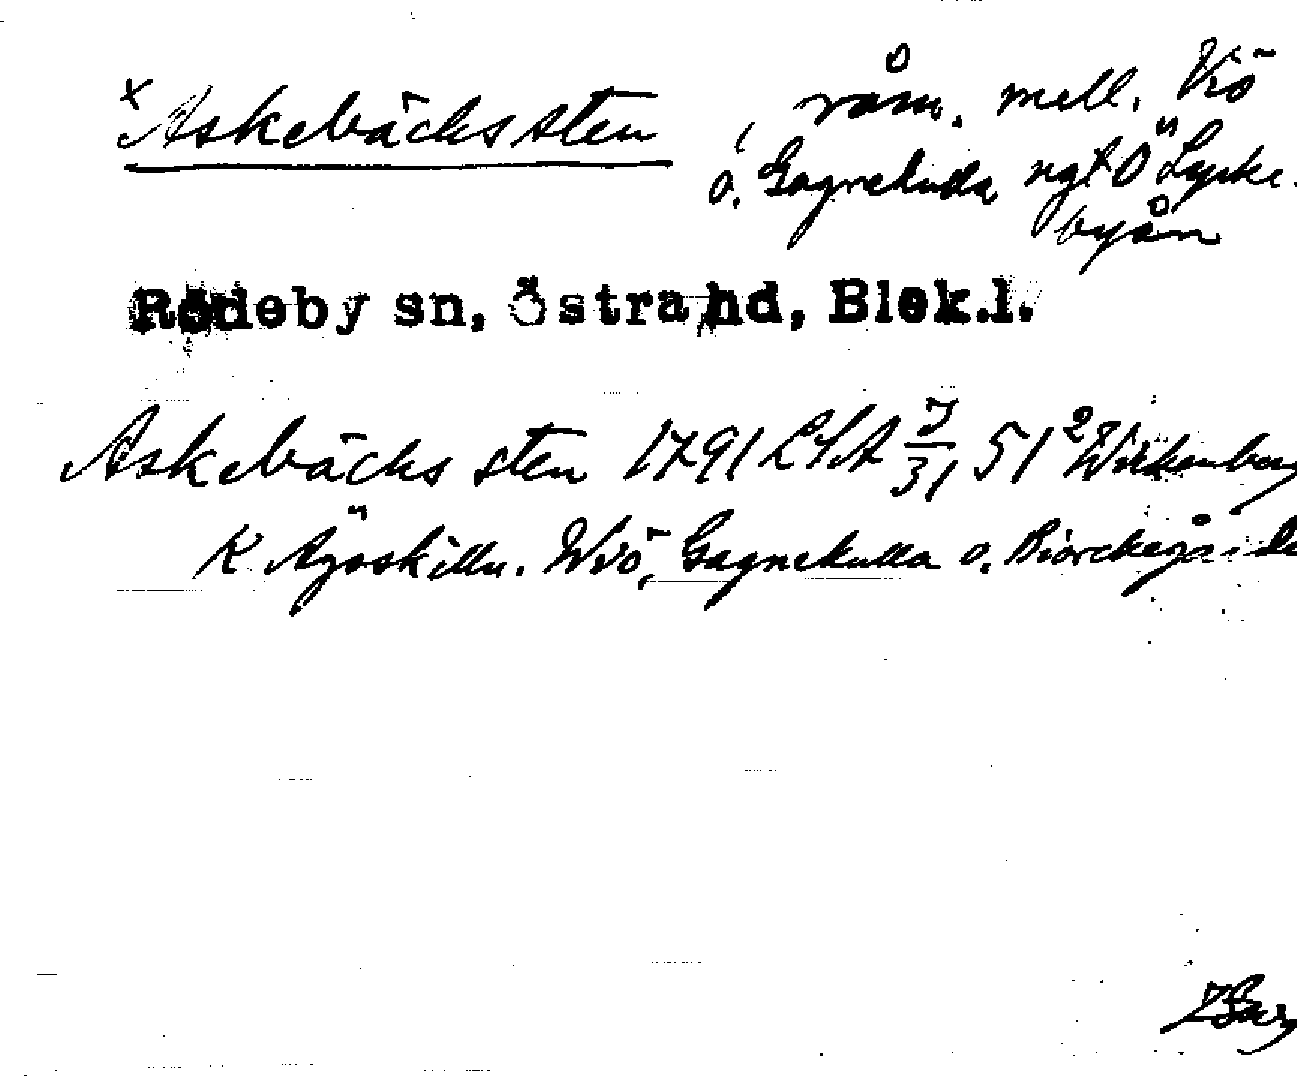 x Askebäcks sten, råm. mell. Viö
o. Gagnekulla ngt Ö Lycke-
byån
Rödeby sn, Östra hd, Blek.l.
Askebäcks sten 1791 LSA J/31 51² Wickenberg
K Ägoskilln. Wiö, Gagnekulla o. Biorckegårde